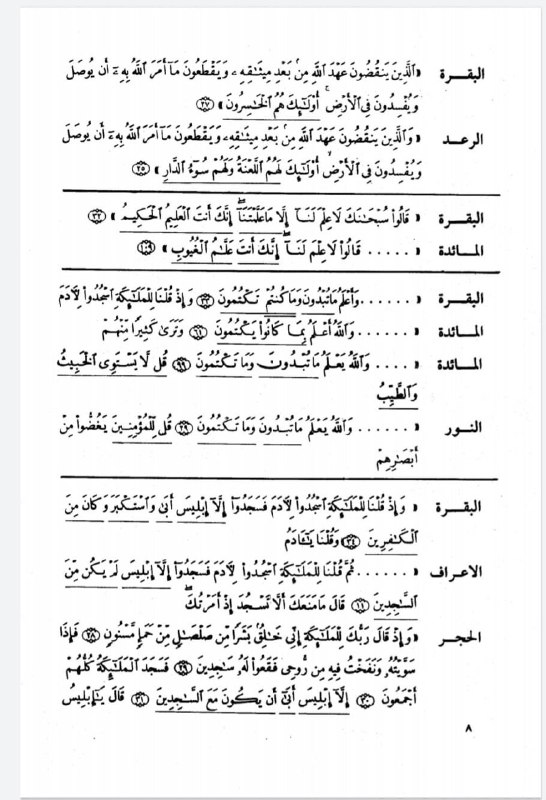 البقرة «الَّذِينَ يَنقُضُونَ عَهْدَ اللَّهِ مِنۢ بَعْدِ مِيثَٰقِهِۦ وَيَقْطَعُونَ مَآ أَمَرَ اللَّهُ بِهِۦٓ أَن يُوصَلَ
وَيُفْسِدُونَ فِى الْأَرْضِ ۚ أُو۟لَٰٓئِكَ هُمُ الْخَٰسِرُونَ» ٢٧
الرعد «وَالَّذِينَ يَنقُضُونَ عَهْدَ اللَّهِ مِنۢ بَعْدِ مِيثَٰقِهِۦ وَيَقْطَعُونَ مَآ أَمَرَ اللَّهُ بِهِۦٓ أَن يُوصَلَ
وَيُفْسِدُونَ فِى الْأَرْضِ ۙ أُو۟لَٰٓئِكَ لَهُمُ اللَّعْنَةُ وَلَهُمْ سُوٓءُ الدَّارِ» ٢٥
البقرة «قَالُوا۟ سُبْحَٰنَكَ لَا عِلْمَ لَنَآ إِلَّا مَا عَلَّمْتَنَآ ۖ إِنَّكَ أَنتَ الْعَلِيمُ الْحَكِيمُ» ٣٢
المائدة «...... قَالُوا۟ لَا عِلْمَ لَنَآ ۖ إِنَّكَ أَنتَ عَلَّٰمُ الْغُيُوبِ» ١٠٩
البقرة «......وَأَعْلَمُ مَا تُبْدُونَ وَمَا كُنتُمْ تَكْتُمُونَ ٣٣ وَإِذْ قُلْنَا لِلْمَلَٰٓئِكَةِ اسْجُدُوا۟ لِءَادَمَ
المائدة «...... وَاللَّهُ أَعْلَمُ بِمَا كَانُوا۟ يَكْتُمُونَ ٦١ وَتَرَىٰ كَثِيرًا مِّنْهُمْ
المائدة «..... وَاللَّهُ يَعْلَمُ مَا تُبْدُونَ وَمَا تَكْتُمُونَ ٩٩ قُل لَّا يَسْتَوِى الْخَبِيثُ
وَالطَّيِّبُ
النور «...... وَاللَّهُ يَعْلَمُ مَا تُبْدُونَ وَمَا تَكْتُمُونَ ٢٩ قُل لِّلْمُؤْمِنِينَ يَغُضُّوا۟ مِنْ
أَبْصَٰرِهِمْ
البقرة «وَإِذْ قُلْنَا لِلْمَلَٰٓئِكَةِ اسْجُدُوا۟ لِءَادَمَ فَسَجَدُوٓا۟ إِلَّآ إِبْلِيسَ أَبَىٰ وَاسْتَكْبَرَ وَكَانَ مِنَ
الْكَٰفِرِينَ ٣٤ وَقُلْنَا يَٰٓـَٔادَمُ
الاعراف «...... ثُمَّ قُلْنَا لِلْمَلَٰٓئِكَةِ اسْجُدُوا۟ لِءَادَمَ فَسَجَدُوٓا۟ إِلَّآ إِبْلِيسَ لَمْ يَكُن مِّنَ
السَّٰجِدِينَ ١١ قَالَ مَا مَنَعَكَ أَلَّا تَسْجُدَ إِذْ أَمَرْتُكَ ۖ
الحجر «وَإِذْ قَالَ رَبُّكَ لِلْمَلَٰٓئِكَةِ إِنِّى خَٰلِقٌۢ بَشَرًا مِّن صَلْصَٰلٍ مِّنْ حَمَإٍ مَّسْنُونٍ ٢٨ فَإِذَا
سَوَّيْتُهُۥ وَنَفَخْتُ فِيهِ مِن رُّوحِى فَقَعُوا۟ لَهُۥ سَٰجِدِينَ ٢٩ فَسَجَدَ الْمَلَٰٓئِكَةُ كُلُّهُمْ
أَجْمَعُونَ ٣٠ إِلَّآ إِبْلِيسَ أَبَىٰٓ أَن يَكُونَ مَعَ السَّٰجِدِينَ ٣١ قَالَ يَٰٓإِبْلِيسُ
٨